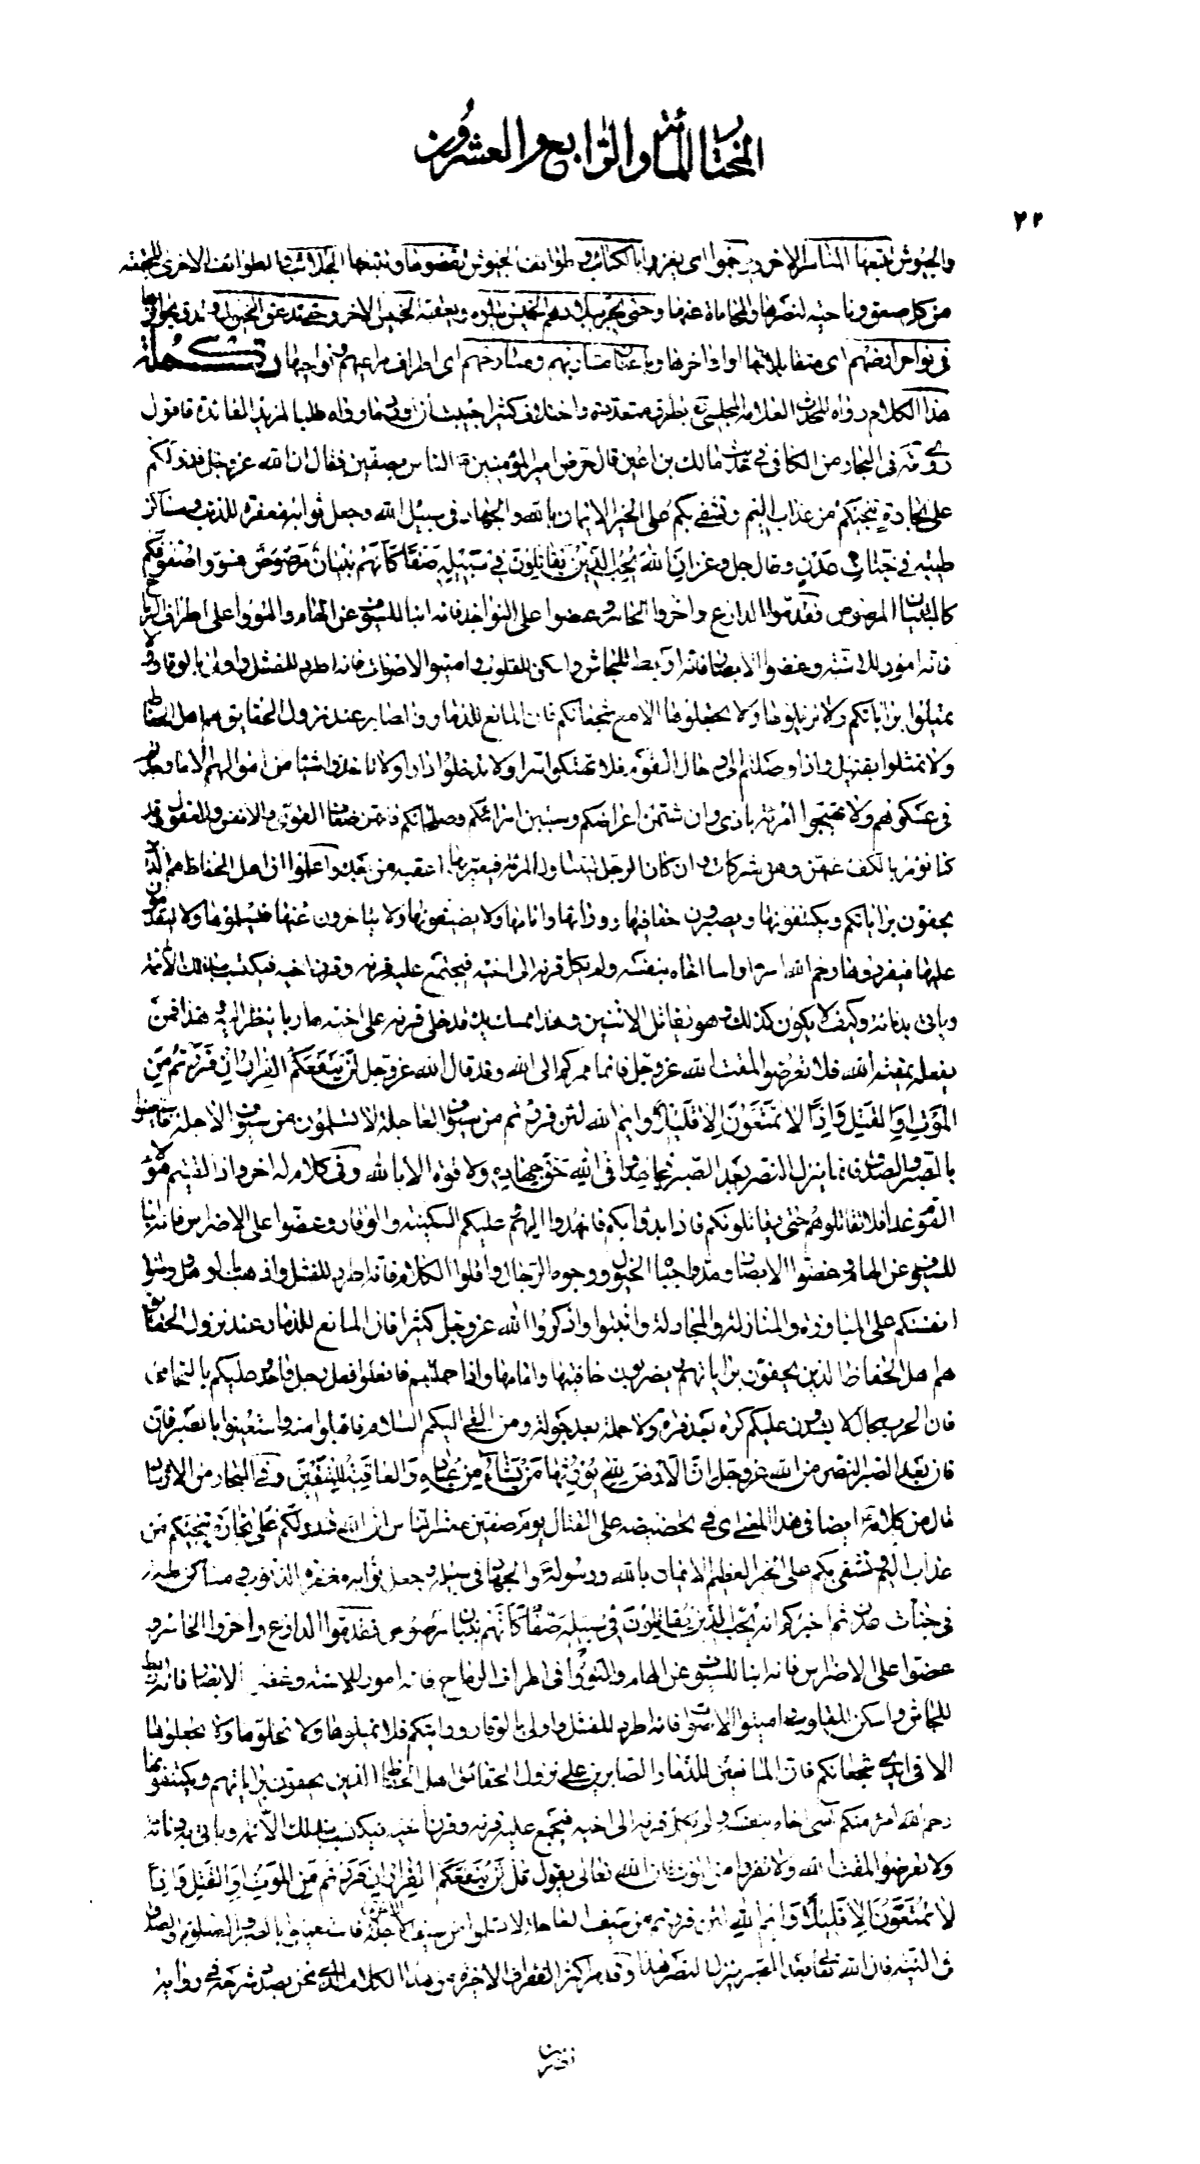 المختار المائة والرابع والعشرون
٢٢
والجيوش تتبعها المناسر الاخر ويرجموا اى يغزوا بالكتائب و طوائف الجيوش تقفوها وتتبعها الجلائب والطوائف الاخرى المجتمعة
من كل صقع وناحية لنصرها والمحاماة عنها وحتى يجر ببلادهم الخميس يتلوه ويعقبه الخميس الاخر وحتى تدعق الخيول وتدق بحوافرها
فى نواحر ارضهم اى متقابلاتها او اواخرها وباعنان مساربهم ومسارحهم اى اطراف مراعيهم ونواحيها تكملة
هذا الكلام رواه المحدث العلامة المجلسى بطرق متعددة واختلاف كثير احببت ان اورد ما رواه طلبا لمزيد الفائدة فاقول
روى فى البحار من الكافى فى حديث مالك بن اعين قال حرض امير المؤمنين الناس بصفين فقال ان الله عز وجل قد دلكم
على تجارة تنجيكم من عذاب اليم وتشفى بكم على الخير الايمان بالله والجهاد فى سبيل الله وجعل ثوابه مغفرة للذنب ومساكن
طيبة فى جنات عدن وقال جل وعز ان الله يحب الذين يقاتلون فى سبيله صفا كانهم بنيان مرصوص فسووا صفوفكم
كالبنيان المرصوص فقدموا الدارع واخروا الحاسر وعضوا على النواجذ فانه انبا للسيوف عن الهام والتووا على اطراف الرماح
فانه امور للاسنة وغضوا الابصار فانه اربط للجاش واسكن للقلوب واميتوا الاصوات فانه اطرد للفشل واولى بالوقار ولا
تميلوا براياتكم ولا تزيلوها ولا تجعلوها الا مع شجعانكم فان المانع للذمار والصابر عند نزول الحقايق هم اهل الحفاظ
ولا تمثلوا بقتيل واذا وصلتم الى رحال القوم فلا تهتكوا سترا ولا تدخلوا دارا ولا تاخذوا شيئا من اموالهم الا ما وجدتم
فى عسكرهم ولا تهيجوا امرئة باذى وان شتمن اعراضكم وسببن امرائكم وصلحائكم فانهن ضعاف القوى والانفس والعقول وقد
كنا نؤمر بالكف عنهن وهن مشركات وان كان الرجل ليتناول المرئة فيعير بها اعقبه من بعده واعلموا ان اهل الحفاظ هم الذين
يحفون براياتكم ويكتنفونها ويصيرون حفافيها ووراءها وامامها ولا يضيعونها ولا يتاخرون عنها فيسلموها ولا يتقدمون
عليها فيفردوها رحم الله امرءا واسا اخاه بنفسه ولم يكل قرنه الى اخيه فيجتمع عليه قرنه وقرن اخيه فيكتسب بذلك لائمة
وياتى بدنائة وكيف لا يكون كذلك وهو يقاتل الاثنين وهذا ممسك يده قد خلى قرنه على اخيه هاربا ينظر اليه هذا فمن
يفعله يمقته الله فلا تعرضوا لمقت الله عز وجل فانما ممركم الى الله وقد قال الله عز وجل لن ينفعكم الفرار ان فررتم من
الموت او القتل واذا لا تمتعون الا قليلا وايم الله لئن فررتم من سيوف العاجلة لا تسلمون من سيوف الاجلة فاستعينوا
بالصبر والصدق فانما ينزل النصر بعد الصبر فجاهدوا فى الله حق جهاده ولا قوة الا بالله وفى كلام له اخر واذا لقيتم هؤلاء
القوم غدا فلا تقاتلوهم حتى يقاتلونكم فاذا بدؤا بكم فانهدوا اليهم عليكم السكينة والوقار وعضوا على الاضراس فانه انبا
للسيوف عن الهام وغضوا الابصار ومدوا جباه الخيول ووجوه الرجال واقلوا الكلام فانه اطرد للفشل واذهب بالوهل ووطنوا
انفسكم على المبارزة والمنازلة والمجادلة واثبتوا واذكروا الله عز وجل كثيرا فان المانع للذمار عند نزول الحقايق
هم اهل الحفاظ الذين يحفون براياتهم يضربون حافتيها وامامها واذا حملتم فافعلوا فعل رجل واحد وعليكم بالتحامى
فان الحرب سجال لا يشدون عليكم كرة بعد فرة ولا حملة بعد جولة ومن القى اليكم السلام فاقبلوا منه واستعينوا بالصبر فان
فان بعد الصبر النصر من الله عز وجل ان الارض لله يورثها من يشاء من عباده والعاقبة للمتقين وفى البحار من الارشاد
قال من كلامه ايضا فى هذا المعنى اى فى تحضيضه على القتال يوم صفين معشر الناس ان الله قد دلكم على تجارة تنجيكم من
عذاب اليم وتشفى بكم على الخير العظيم الايمان بالله ورسوله والجهاد فى سبيله وجعل ثوابه مغفرة الذنوب ومساكن طيبة
فى جنات عدن ثم اخبركم انه يحب الذين يقاتلون فى سبيله صفا كانهم بنيان مرصوص فقدموا الدارع واخروا الحاسر و
عضوا على الاضراس فانه انبا للسيوف عن الهام والتووا فى اطراف الرماح فانه امور للاسنة وغضوا الابصار فانه اربط
للجاش واسكن للقلوب واميتوا الاصوات فانه اطرد للفشل واولى بالوقار ورايتكم فلا تميلوها ولا تخلوها ولا تجعلوها
الا فى ايدى شجعانكم فان المانعين للذمار الصابرين على نزول الحقائق اهل الحفاظ الذين يحفون براياتهم ويكتنفونها
رحم الله امرء منكم آسى اخاه بنفسه ولم يكل قرنه الى اخيه فيجتمع عليه قرنه وقرن اخيه فيكتسب بذلك اللائمة وياتى به دنائة
ولا تعرضوا لمقت الله ولا تفروا من الموت فان الله تعالى يقول قل لن ينفعكم الفرار ان فررتم من الموت او القتل واذا
لا تمتعون الا قليلا وايم الله لئن فررتم من سيف العاجلة لا تسلموا من سيف الاجلة فاستعينوا بالصبر والصلوة والصدق
فى النية فان الله تعالى بعد الصبر ينزل النصر هذا وقد مر اكثر الفقرات الاخيرة من هذا الكلام الذى نحن بصدد شرحه فى رواية
نصر بن